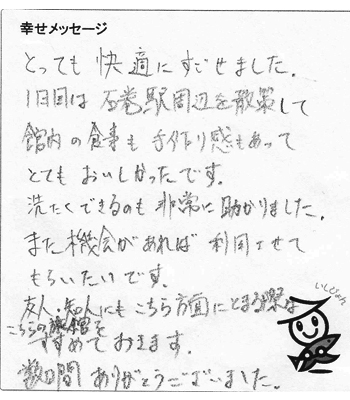 幸せメッセージ
とっても 快適にすごせました。
1日目は 石巻駅周辺を散策して
館内の食事も 手作り感もあって
とても おいしかったです。
洗たくできるのも 非常に助かりました。
また機会があれば 利用させて
もらいたいです。
友人・知人にも こちら方面にとまる際は
こちらの旅館を
すすめておきます。
数日間 ありがとうございました。
いしぴょん